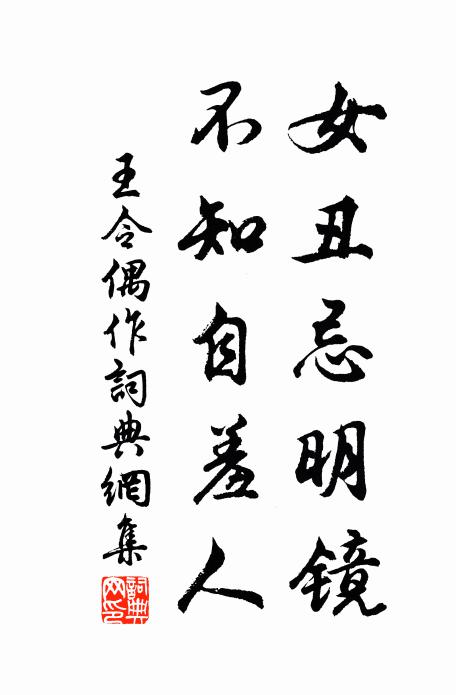 女丑忌明镜
不知自羞人
王令偶作詞典網集
詞典網印